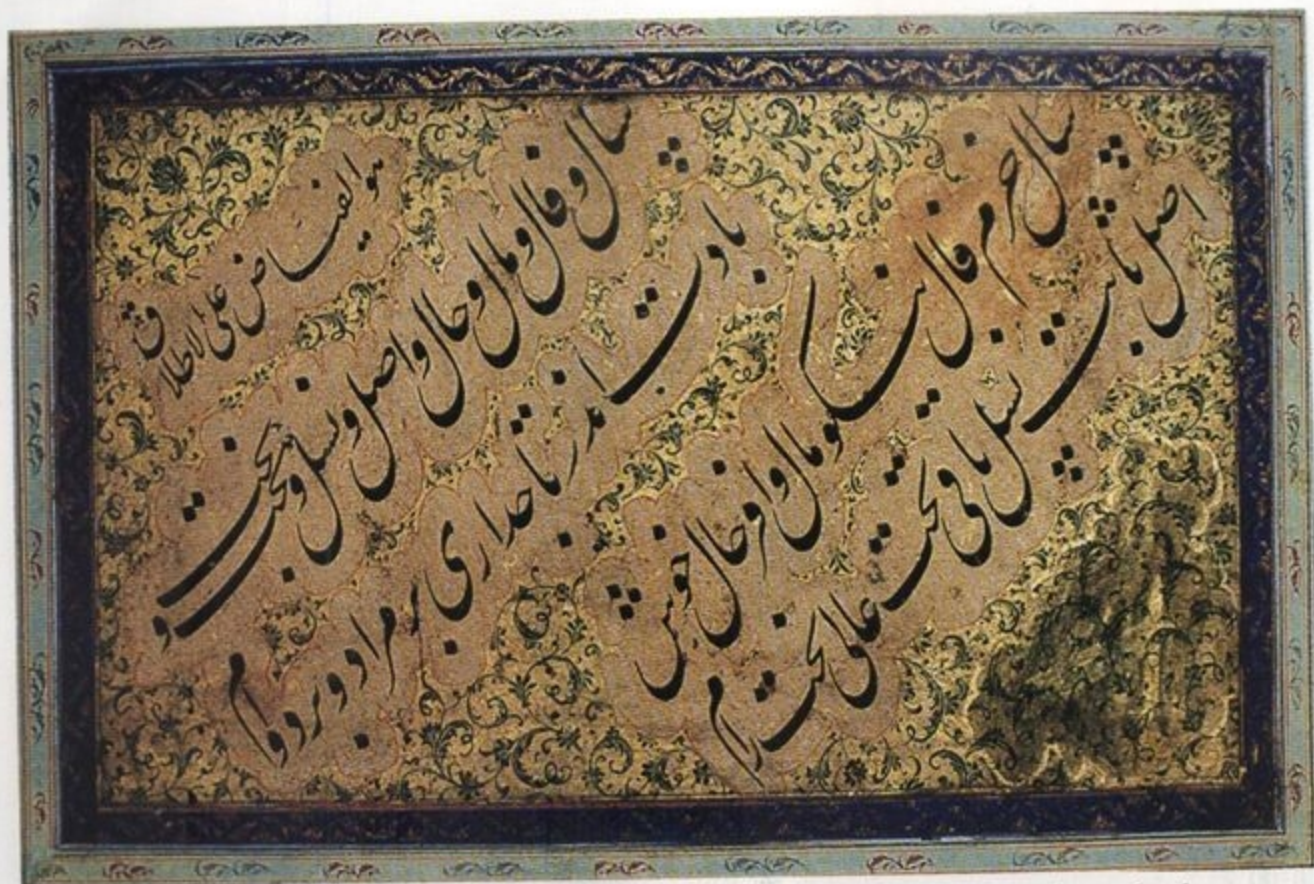 هو الفیاض علی الاطلاق
سال و فال و مال و حال و اصل و نسل و تخت و بخت
بادت اندر تاجداری بر مراد و بر دوام
سال خرم فال نیکو مال وافر حال خوش
اصل ثابت نسل باقی تخت عالی بخت رام